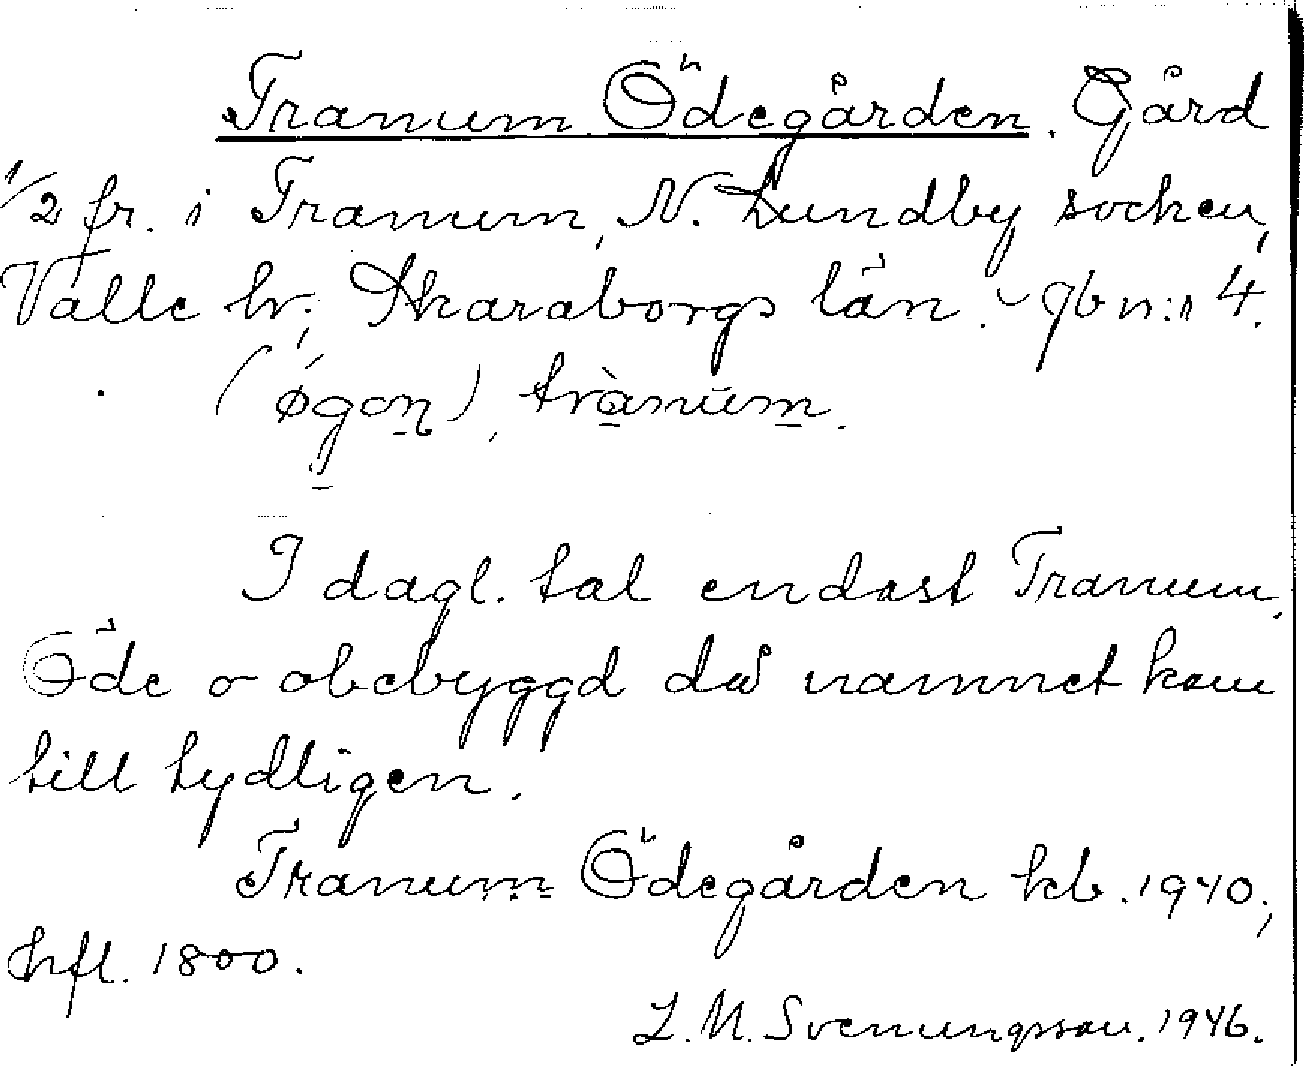 Tranum Ödegården. Gård
1/2 fr. i Tranum, N. Lundby socken,
Valle hr; Skaraborgs län. - Jb n:r 4.
(ǿgon), trànūm.
I dagl. tal endast Tranum.
Öde o obebyggd då namnet kom
till tydligen.
Tranum Ödegården kb. 1940;
hfl. 1800.
L.M. Svenungsson. 1946.